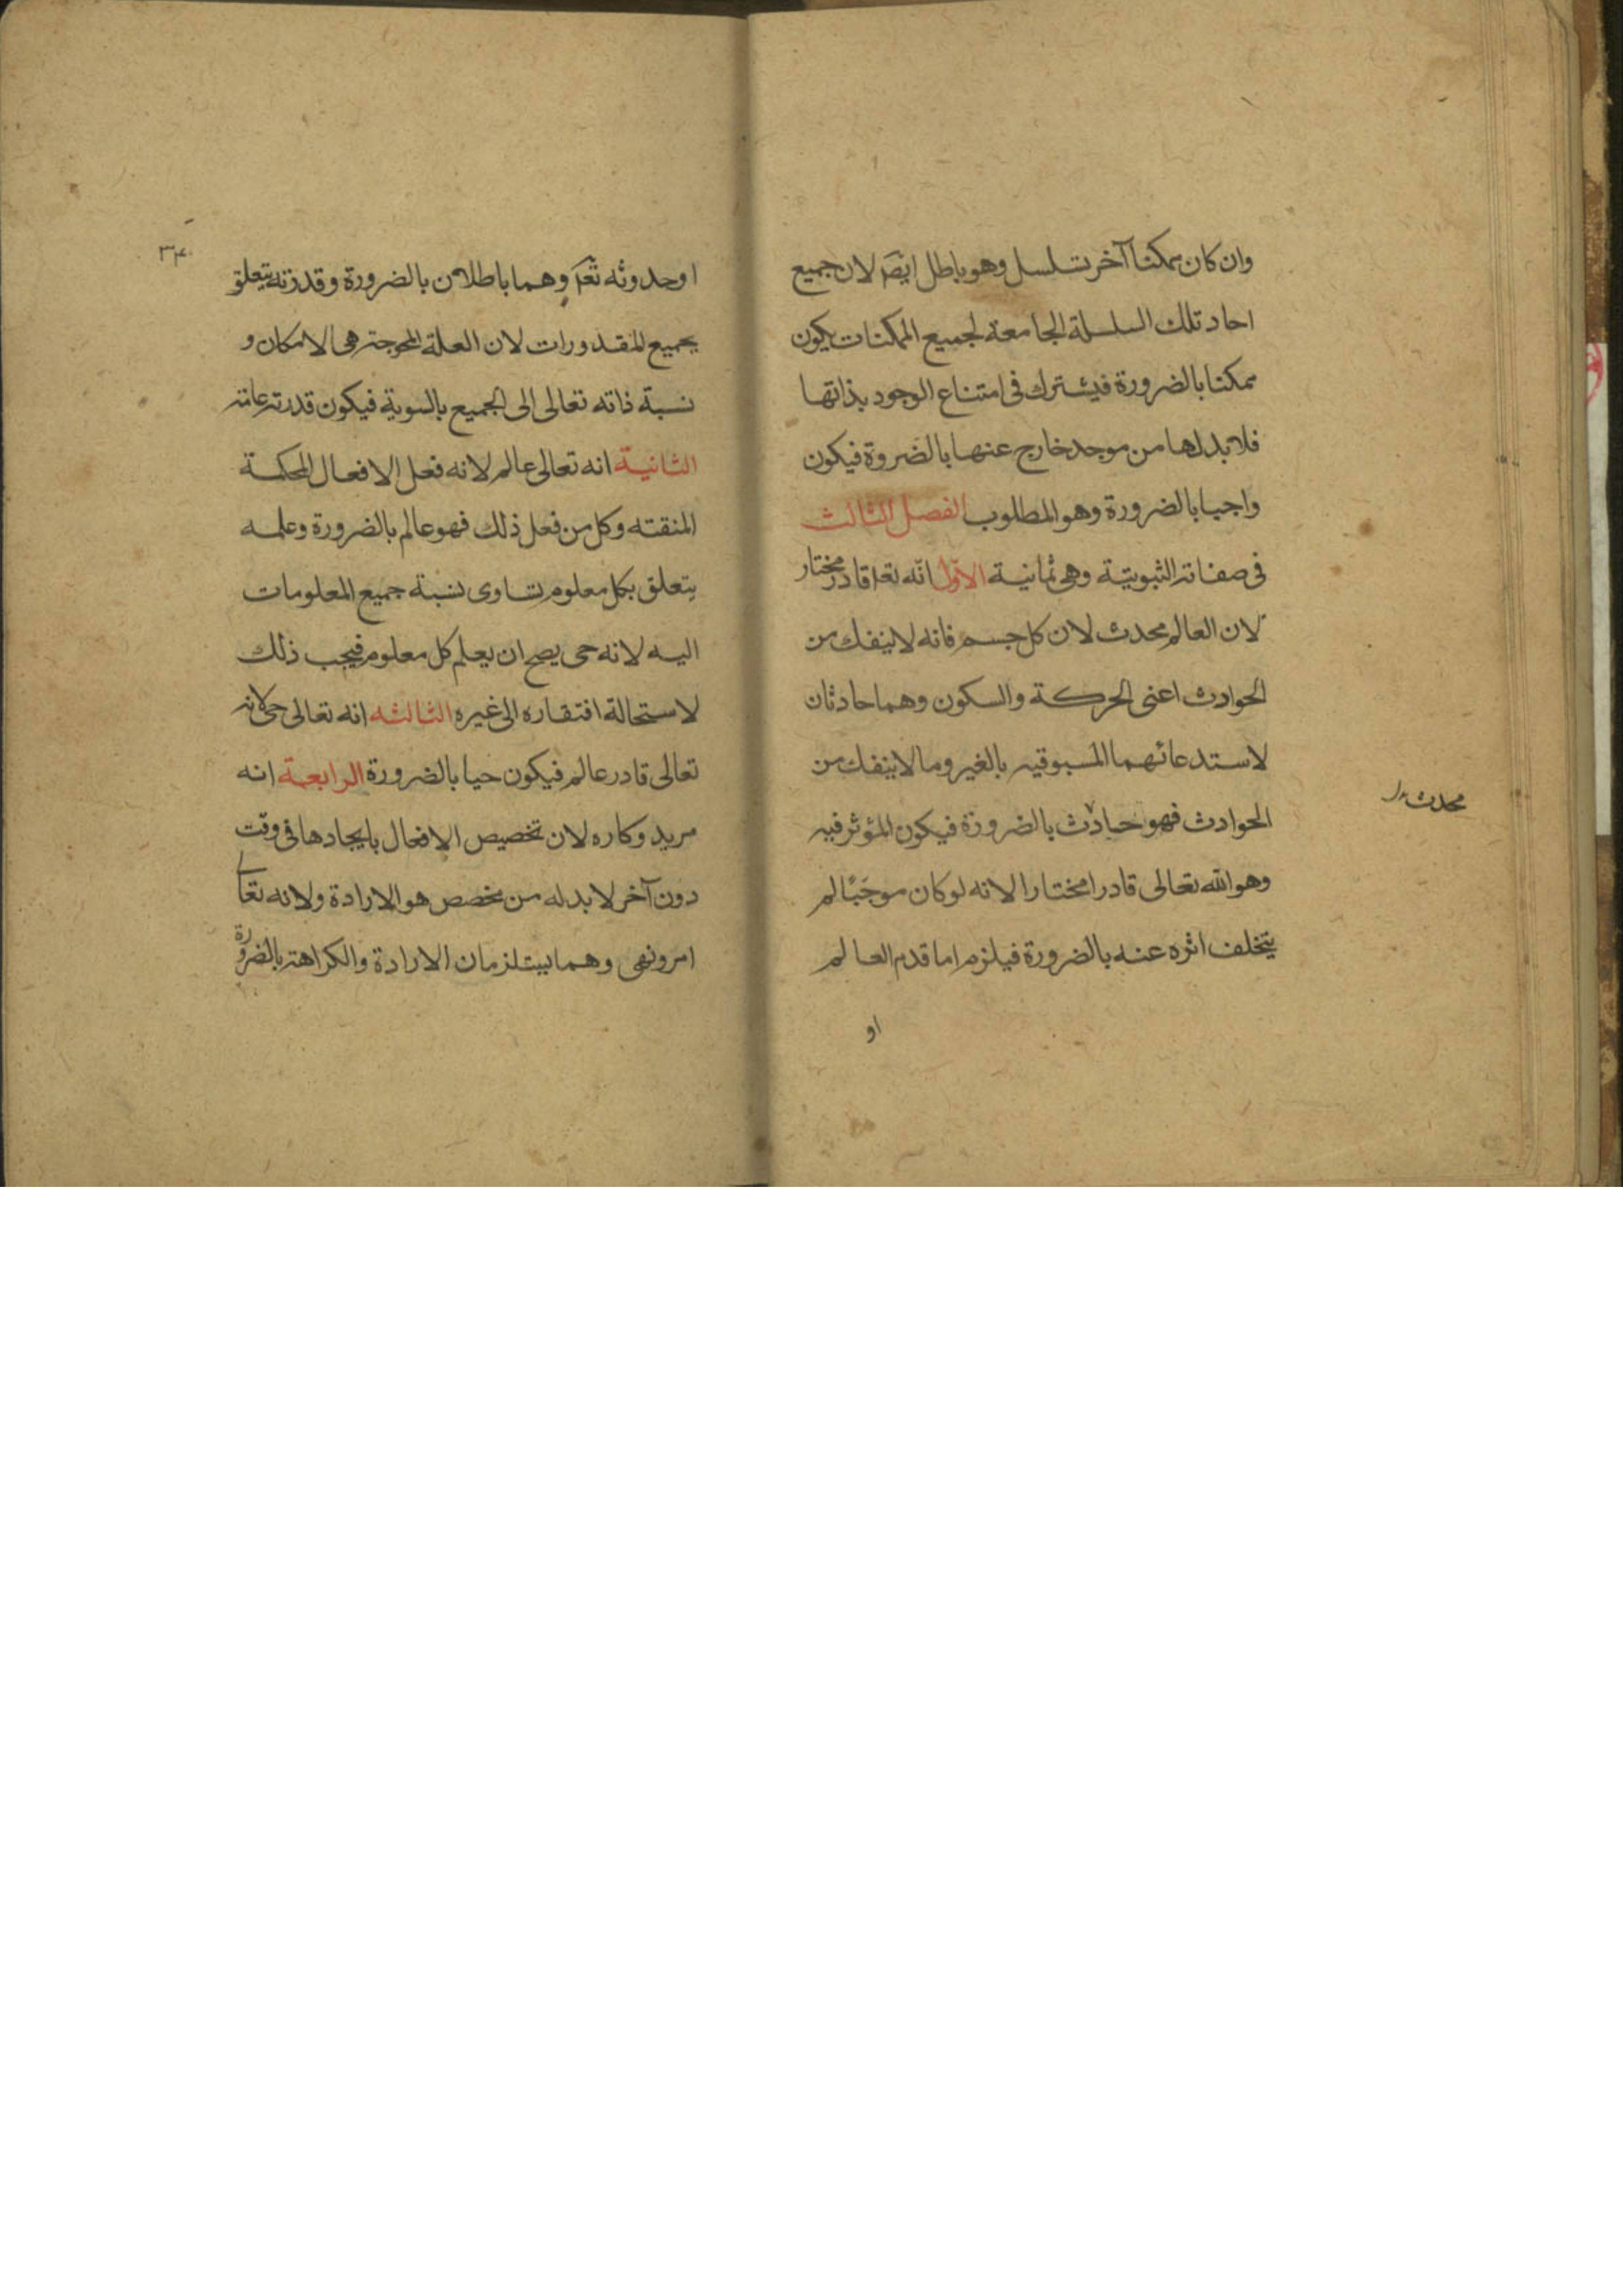 وان كان ممكنا آخر تسلسل وهو باطل ايضا لان جميع
احاد تلك السلسلة الجامعة لجميع الممكنات يكون
ممكنا بالضرورة فيشترك فى امتناع الوجود بذاتها
فلا بد لها من موجد خارج عنها بالضروة فيكون
واجبا بالضرورة وهو المطلوب الفصل الثالث
فى صفاته الثبوتية وهى ثمانية الاول انه تعا قادر مختار
لان العالم محدث لان كل جسم فانه لا ينفك من
الحوادث اعنى الحركة والسكون وهما حادثان
لاستدعائهما المسبوقيه بالغير وما لا ينفك من
محدث
الحوادث فهو حادث بالضرورة فيكون المؤثر فيه
وهو الله تعالى قادرا مختارا لانه لو كان موجبا لم
يتخلف اثره عنه بالضرورة فيلزم اما قدم العالم
او
٣٤
او حدوثه تعا وهما باطلان بالضرورة وقدرته يتعلق
بجميع المقدورات لان العلة المحوجة هى الامكان و
نسبة ذاته تعالى الى الجميع بالسوية فيكون قدرته عامة
الثانية انه تعالى عالم لانه فعل الافعال المحكمة
المتقنه وكل من فعل ذلك فهو عالم بالضرورة وعلمه
يتعلق بكل معلوم تساوى نسبة جميع المعلومات
اليه لانه حى يصح ان يعلم كل معلوم فيجب ذلك
لاستحالة افتقاره الى غيره الثالثه انه تعالى حى لانه
تعالى قادر عالم فيكون حيا بالضرورة الرابعة انه
مريد وكاره لان تخصيص الافعال بايجادها فى وقت
دون آخر لا بد له من مخصص هو الارادة ولانه تعا
امر ونهى وهما يستلزمان الارادة والكراهة بالضرورة